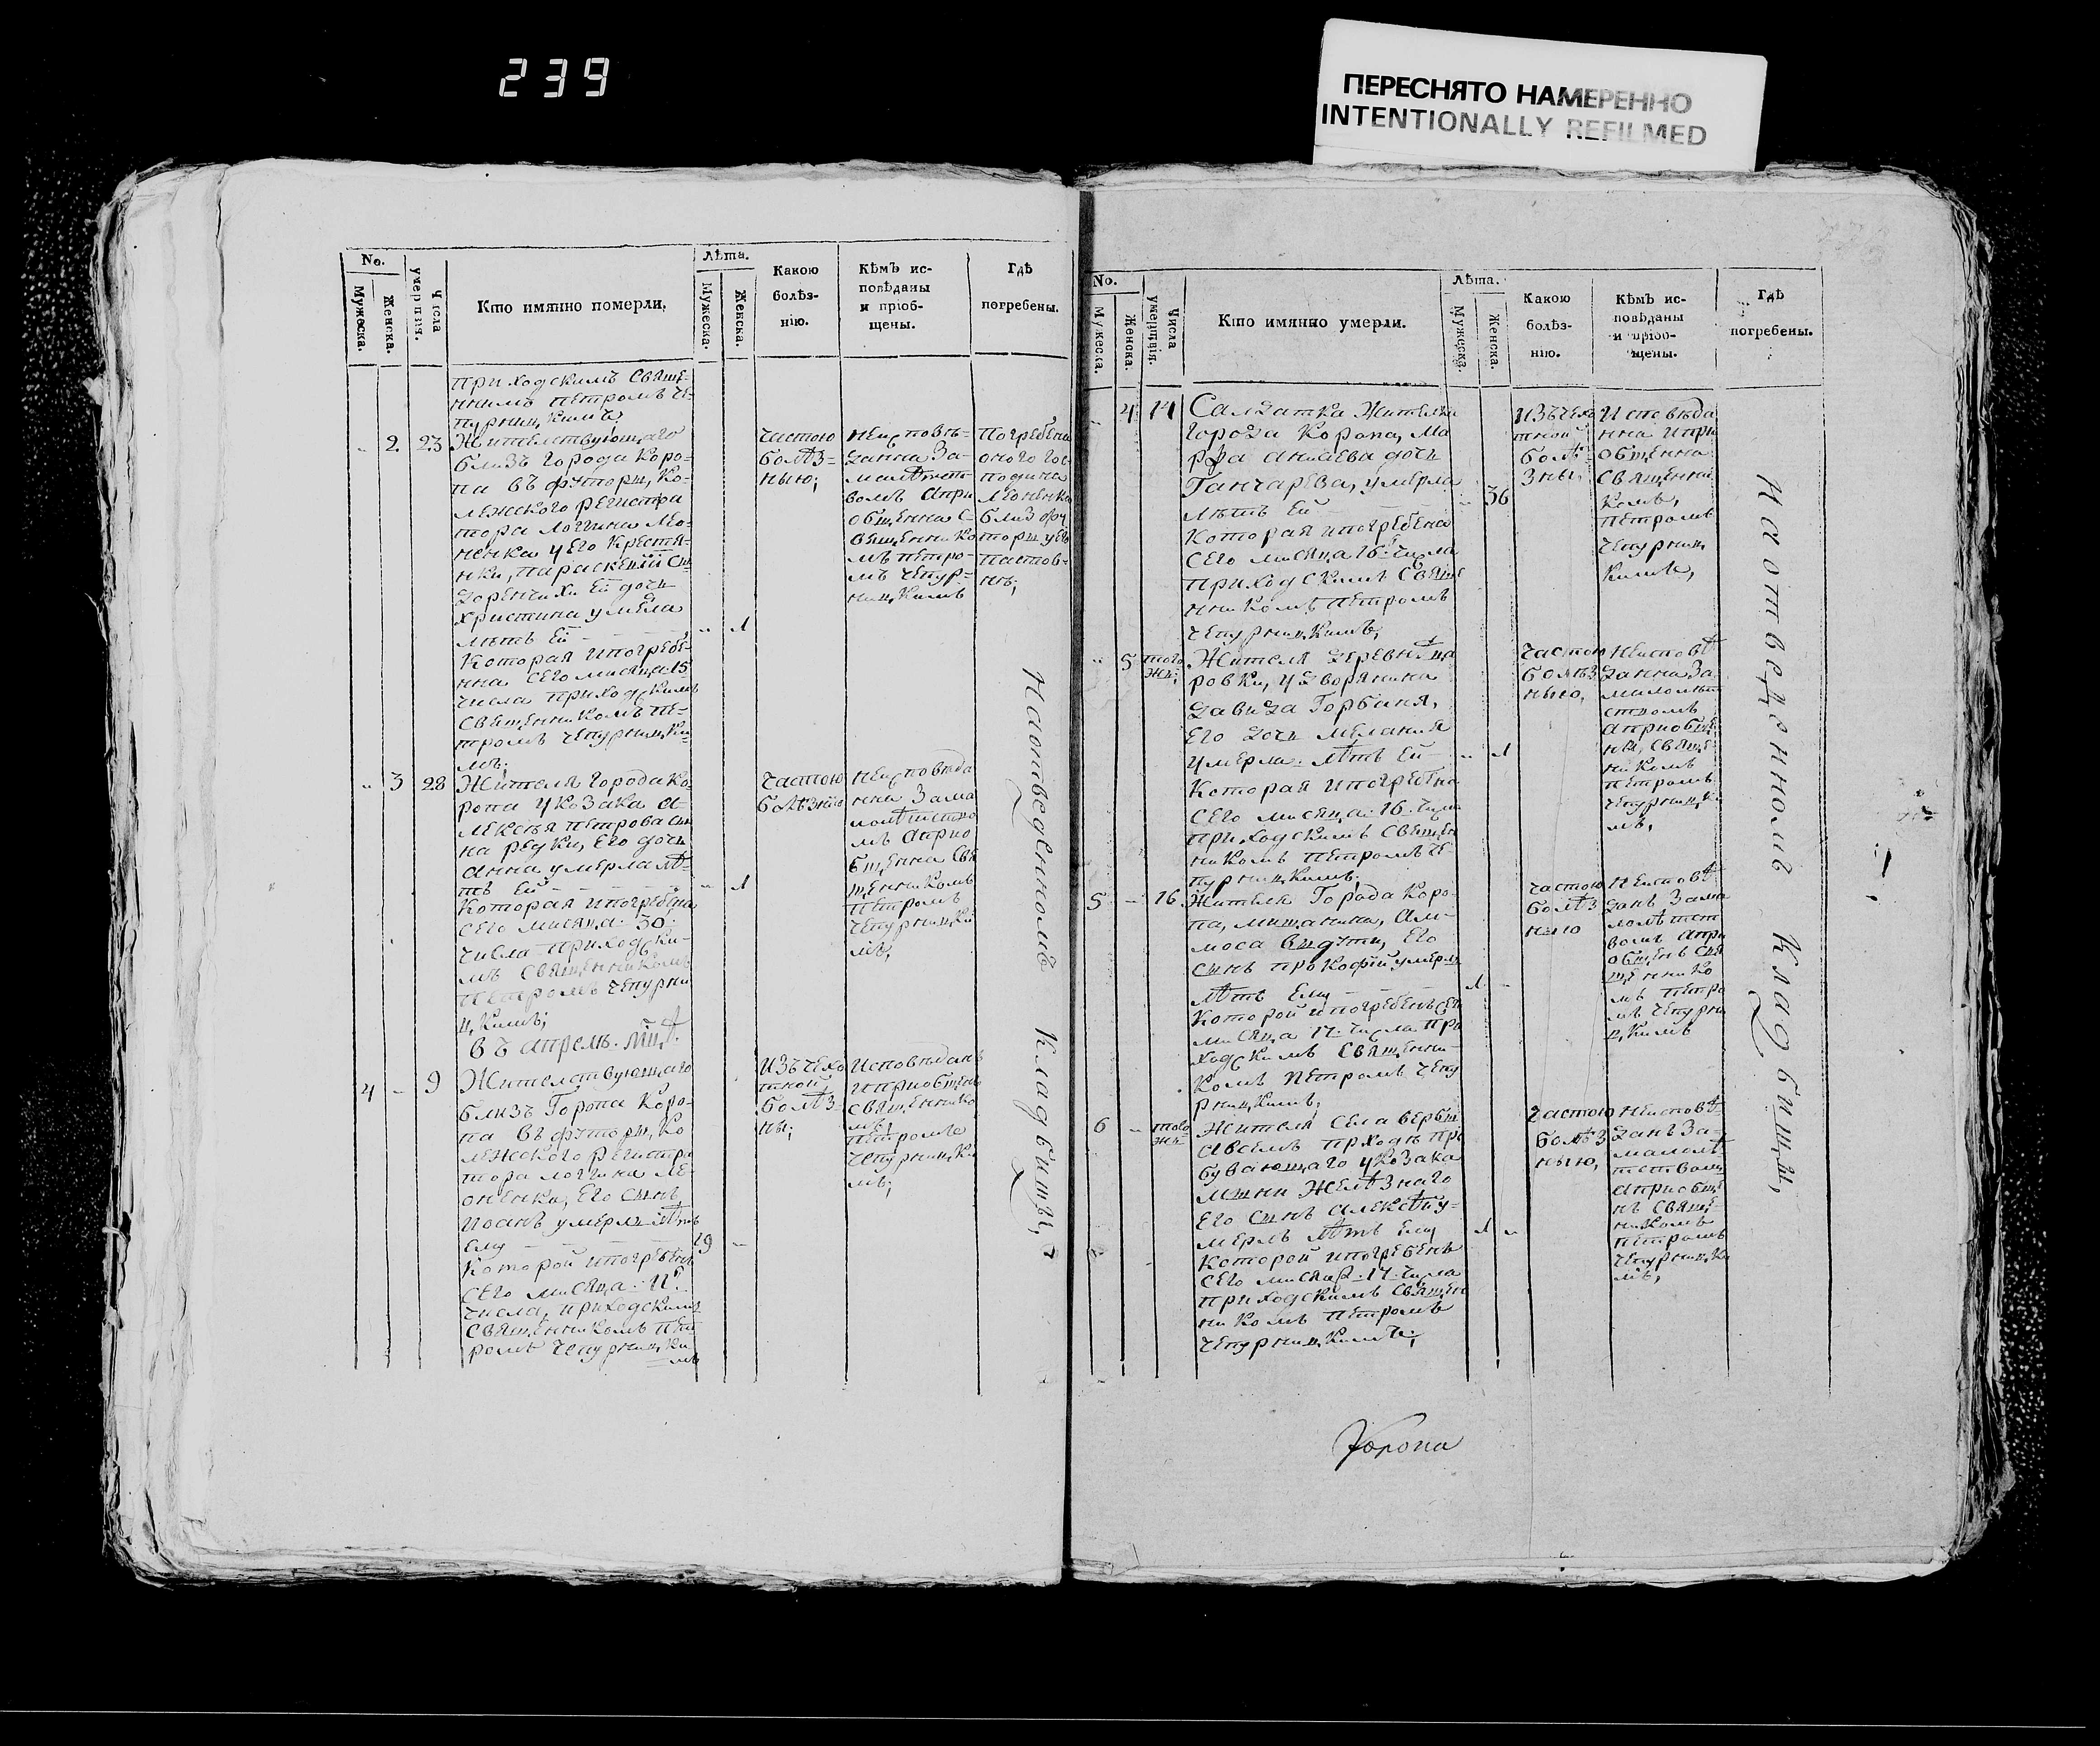 239
ПЕРЕСНЯТО НАМЕРЕННО
INTENTIONALLY REFILMED
No.
Мужеска.
Женска.
Числа умерщия.
Кто имянно померли.
Лѣта.
Мужеска.
Женска.
Какою
болѣз-
нію.
Кѣмъ ис-
повѣданы
и пріоб-
щены.
Гдѣ
погребены.
приходскимъ Свяще-
ннимъ петромъ че-
пурницкимъ;
" 2. 23
Жителствующаго
близъ города Коро-
па въ футори, Ко-
лежского регистра
тора логгина лео-
ненка у его крестя-
нки, параскевіи
дочи
христина умерла
лѣтъ Ей - - -
" 1
Которая ипогребе-
нна сего мисяца 15
числа приходскимъ
священникомъ пе-
тромъ чепурницки-
мъ;
частою
болѣз=
ныю;
неисповѣ=
данна за-
малѣтст
вомъ апри
общенна с-
вященнико
мъ петро-
мъ чепур=
ницкимъ
Погребена
оного гос-
подина
леоненка
близ фу
тори у его
пастов-
нѣ;
" 3 28
Жителя города ко-
ропа у козака а-
лексѣя петрова сы
на редки, его дочи
анна умерла лѣ-
тъ Ей - - - -
" 1
Которая ипогребена
сего мисяца 30.
числа приходски-
мъ священникомъ
петромъ чепурни
цкимъ;
частою
болѣзнію
неисповѣда
нна зама
лолѣтство
мъ априо
бщенна свя
щенникомъ
петромъ
чепурницки
мъ;
въ апрелѣ. Мцѣ.
4 - 9
Жителствующаго
близъ Горопа Коро-
па въ футори, Ко
лежского регистра
тора логгина ле-
оненка, Его сынъ
иоанъ умерлъ лѣтъ
ему - - - -
19 -
Которой ипогребенъ
сего мисяца. 11
числа, приходскимъ
священникомъ пет
ромъ чепурницки
мъ
изъчехо
тной
болѣз-
ны;
исповѣданъ
иприобщенъ
священнико
мъ
петромъ
чепурницки
мъ;
На отведенномъ кладбищи,
No.
Мужеска.
Женска.
Числа умерщвія.
Кто имянно умерли.
Лѣта.
Мужеска.
Женска.
Какою
болѣз-
нію.
Кѣмъ ис-
повѣданы
и пріоб-
щены.
Гдѣ
погребены.
" 4 14
Салдатка Жителка
города Коропа, ма
рфа ананьева дочи
Ганчарева, умерла
лѣтъ Ей
" 36
Которая ипогребена
сего мисяца 16. числа
приходскимъ свяще
нникомъ петромъ
чепурницкимъ,
изъчехо
тной
болѣ-
зны,
исповѣда
нна ипри
общенна
священни
комъ,
петромъ
чепурниц
кимъ,
" 5 того
жъ;
Жителя деревни
ровки, у дворянина
давида Горбиня,
его дочи мелания
умерла. лѣтъ ей -
" 1
Которая ипогребена
сего мисяца. 16. числа
приходскимъ священ
никомъ петромъ че-
пурницкимъ;
частою
болѣз
ныю,
неисповѣ
данна за
малолѣт
ствомъ
априобще
на, свяще
никомъ
петромъ
чепурницки
мъ,
5 - 16.
Жителя Города Коро-
па, мищанина, ам-
моса видути, его
сынъ прокофій умерлъ
лѣтъ ему - - -
1 -
Которой ипогребенъ сего
мисяца 17. числа при
ходскимъ священни-
комъ петромъ чепу
рницкимъ,
частою
болѣз
ныю
неисповѣ
данъ зама
лолѣтст
вомъ апри
общенъ свя
щеннико
мъ петро
мъ чепурни
цкимъ
6 - того
жъ
Жителя села верби
авсемъ приходѣ пре
бувающаго у козака
мини желѣзнаго
его сынъ алексѣй у-
мерлъ лѣтъ ему
1 "
Которой ипогребенъ
сего мисяца. 17. числа
приходскимъ священ
никомъ петромъ
чепурницкимъ;
частою
болѣз
ныю,
неисповѣ-
данъ за-
малолѣ
тствомъ
априобще
нъ свяще-
никомъ
петромъ
чепурницки
мъ,
На отведенномъ кладбищи,
Коропа